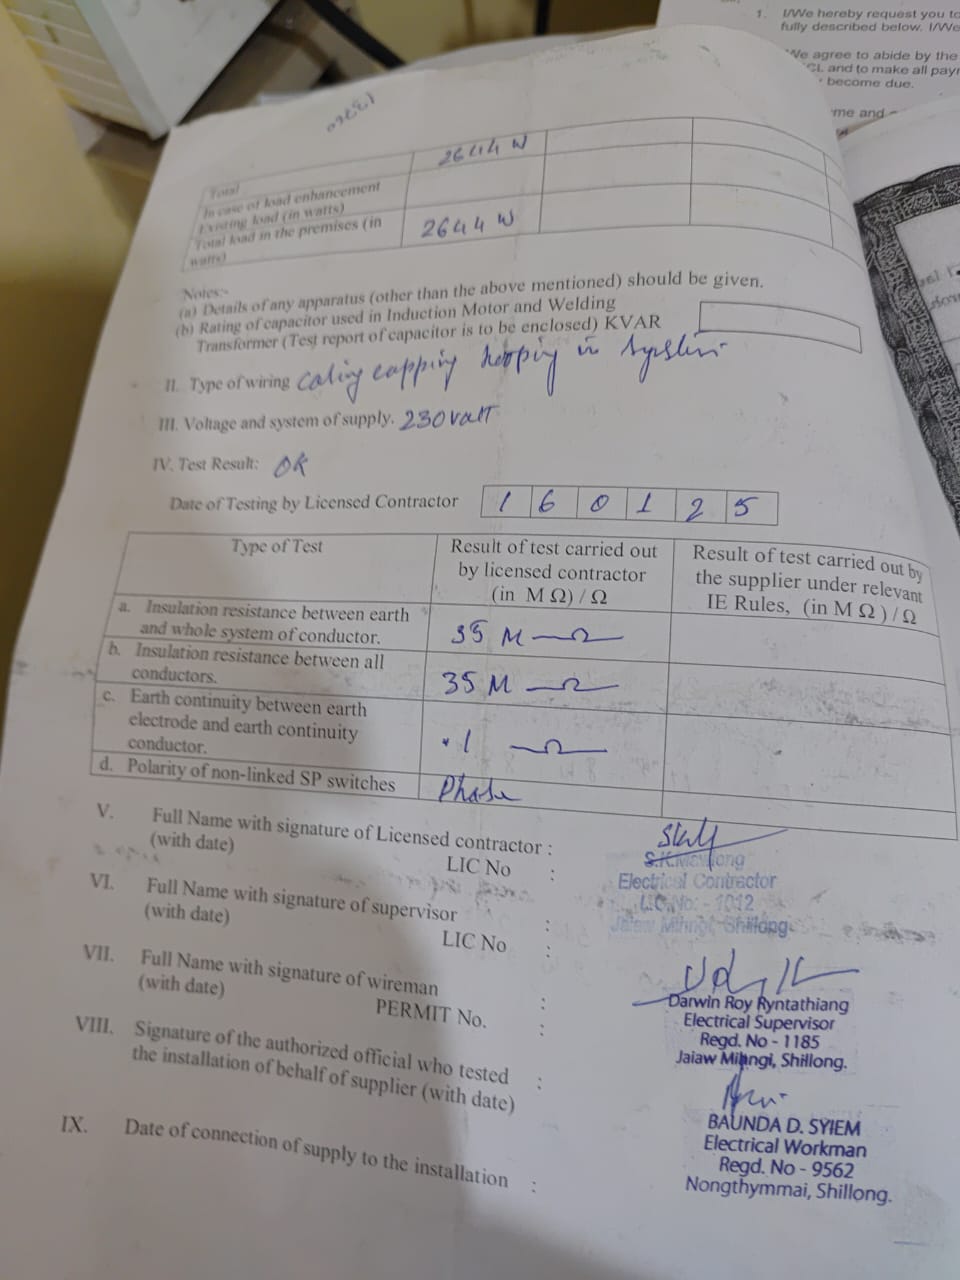 1. I/We hereby request you to
fully described below. I/We
We agree to abide by the
CL and to make all payr
become due.
me and
Total 2644 W
In case of load enhancement
Existing load (in watts)
Total load in the premises (in
watts) 2644 W
Notes:-
(a) Details of any apparatus (other than the above mentioned) should be given.
(b) Rating of capacitor used in Induction Motor and Welding
Transformer (Test report of capacitor is to be enclosed) KVAR
II. Type of wiring
III. Voltage and system of supply. 230 volt
IV. Test Result: OK
Date of Testing by Licensed Contractor 1 6 0 1 2 5
Type of Test
Result of test carried out
by licensed contractor
(in M Ω) / Ω
Result of test carried out by
the supplier under relevant
IE Rules, (in M Ω ) / Ω
a. Insulation resistance between earth
and whole system of conductor.
35 M-Ω
b. Insulation resistance between all
conductors.
35 M-Ω
c. Earth continuity between earth
electrode and earth continuity
conductor.
.1 -Ω
d. Polarity of non-linked SP switches Phase
V. Full Name with signature of Licensed contractor :
(with date)
LIC No :
Electrical Contractor
LIC.No: - 1012
Jaiaw Mihngi, Shillong.
VI. Full Name with signature of supervisor :
(with date)
LIC No :
Darwin Roy Ryntathiang
Electrical Supervisor
Regd. No - 1185
Jaiaw Mihngi, Shillong.
VII. Full Name with signature of wireman :
(with date)
PERMIT No. :
BAUNDA D. SYIEM
Electrical Workman
Regd. No - 9562
Nongthymmai, Shillong.
VIII. Signature of the authorized official who tested :
the installation of behalf of supplier (with date)
IX. Date of connection of supply to the installation :